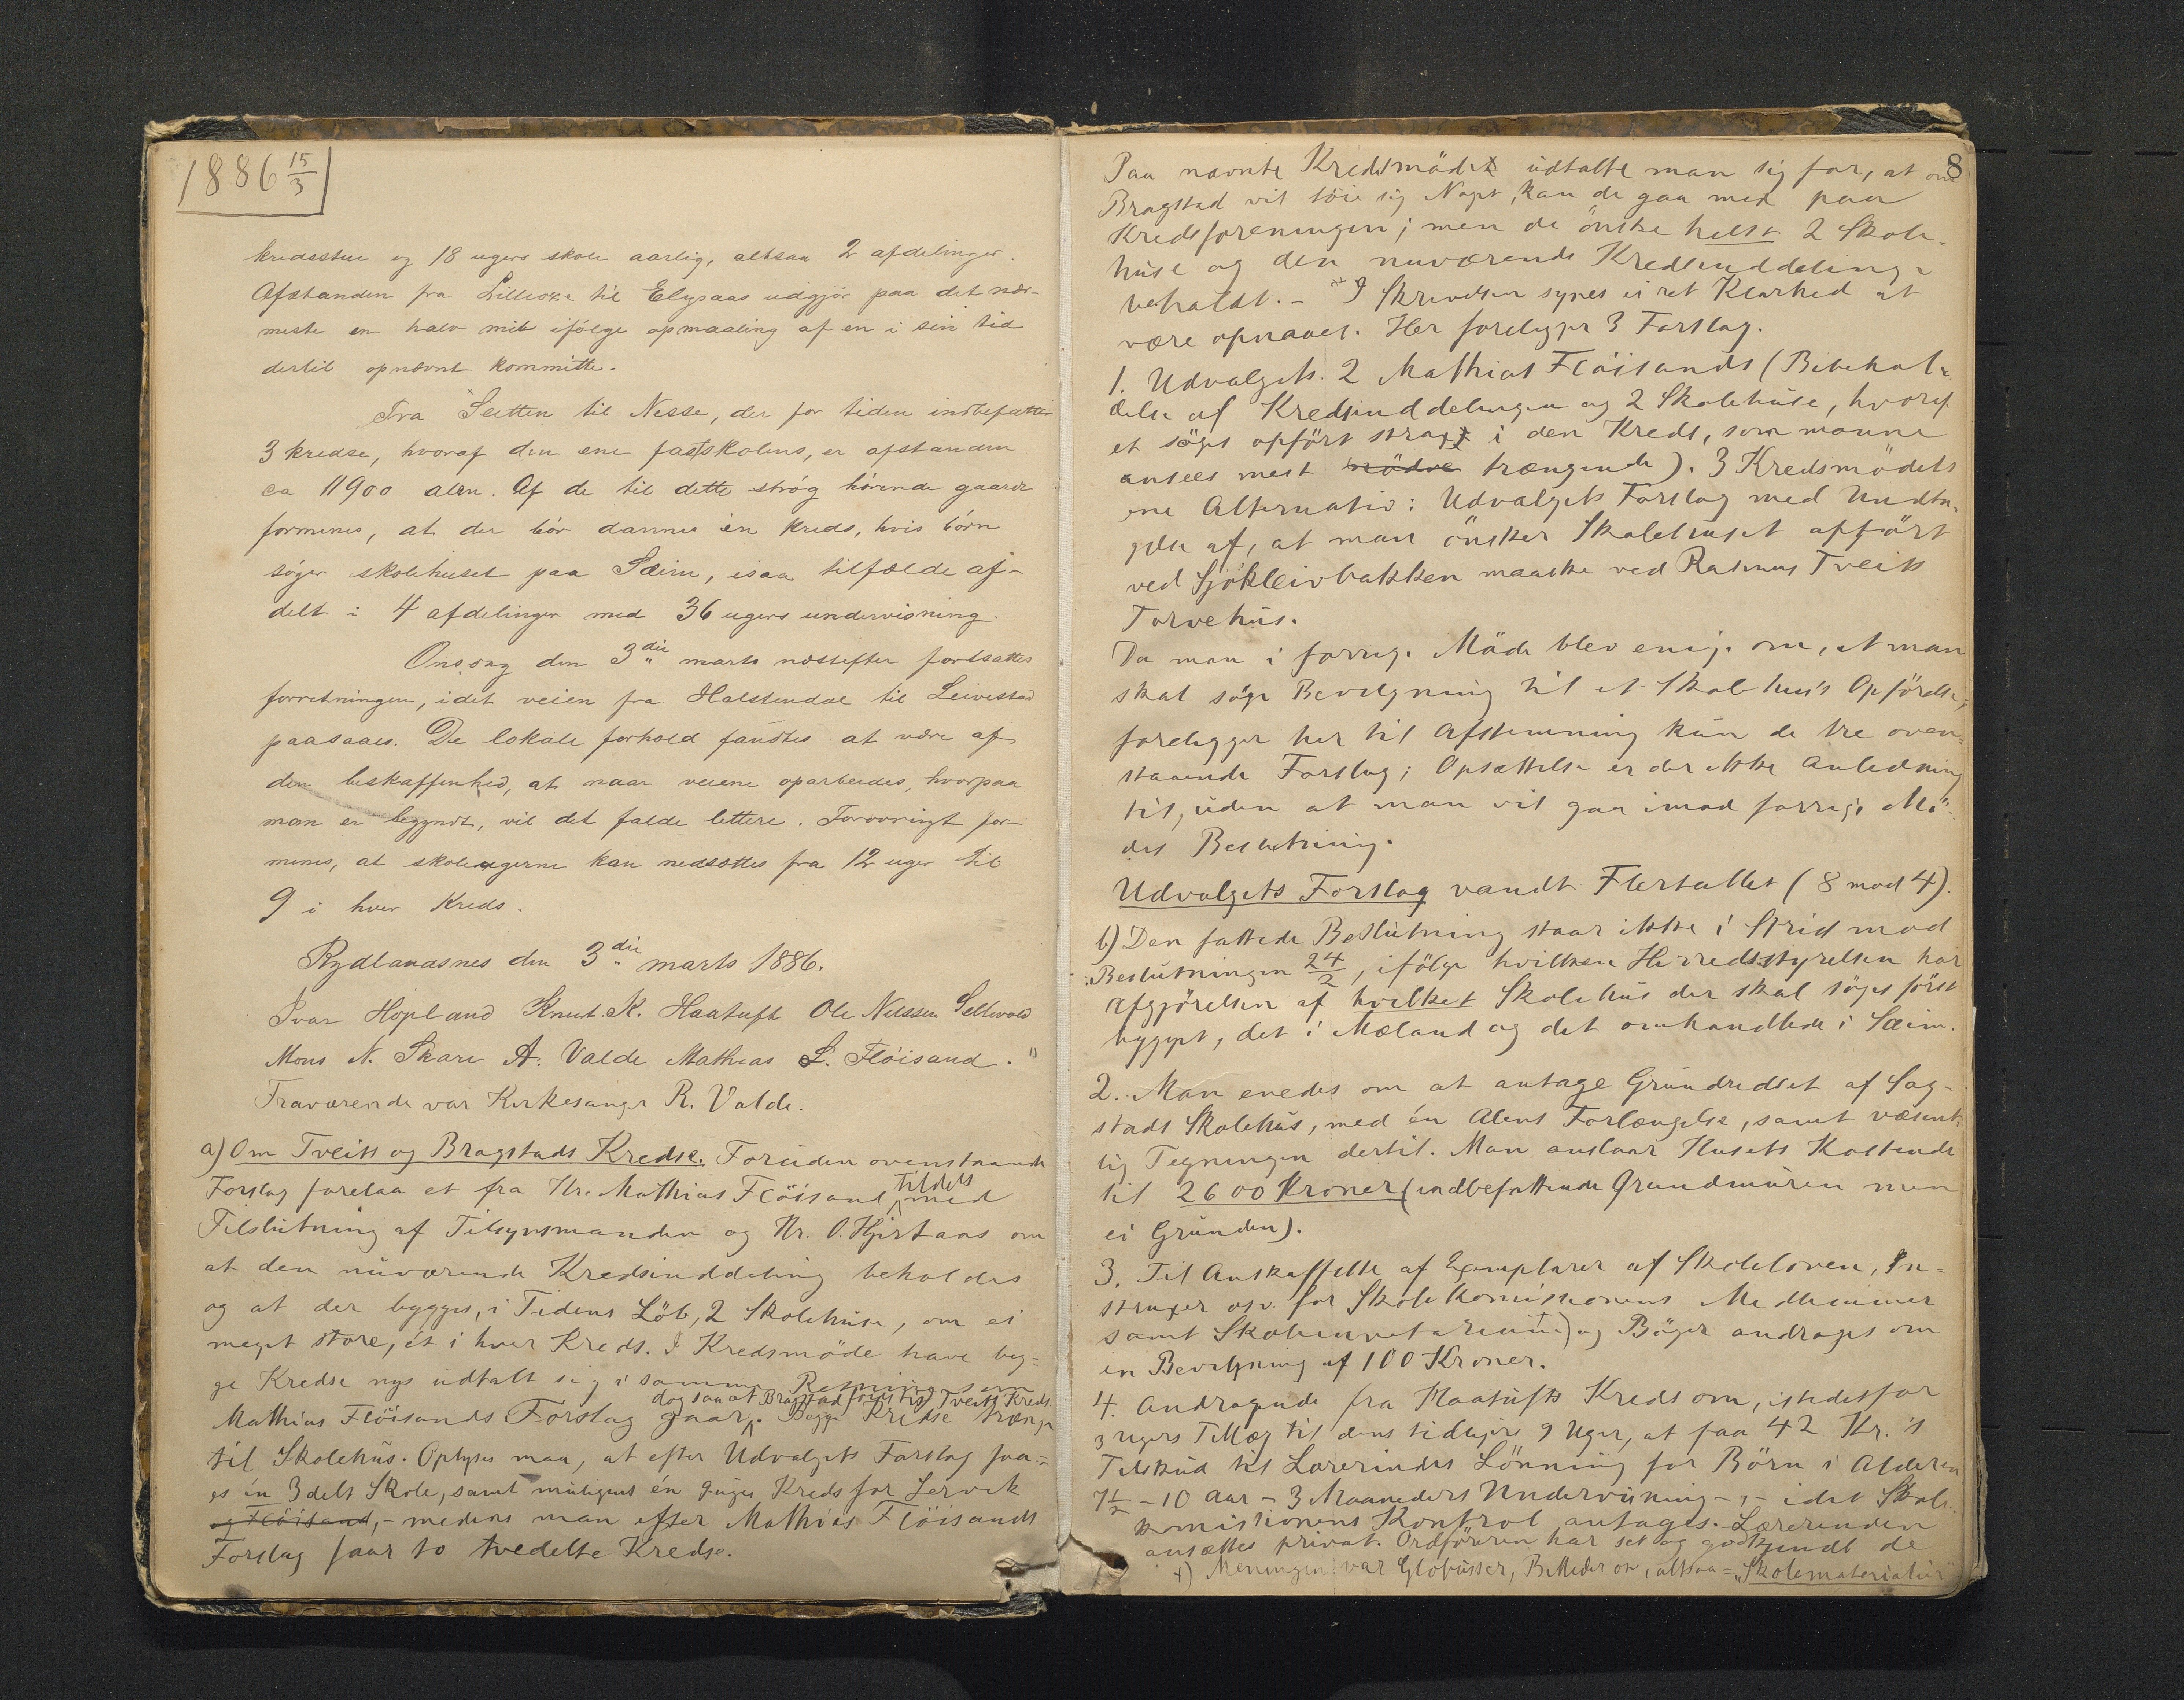 1886 15/3
kredsstue og 18 ugers skole aarlig, altsaa 2 afdelinger.
Afstanden fra Lilleoxe til Elysaas udgjör paa det nær-
meste en halv mil ifölge opmaaling af en i sin tid
dertil opnævnt kommitte.
Fra Sletten til Nesse, der for tiden indbefatter
3 kredse, hvoraf den ene fastskolens, er afstanden
ca 11900 alen. Af de til dette strög hörende gaarde
formenes, at der bör dannes én kreds, hvis börn
söger skolehuset paa Sæim, isaa tilfælde af-
delt i 4 afdelinger med 36 ugers undervisning.
Onsdag den 3die marts næstefter fortsattes
forretningen, idet veien fra Halstendal til Leivestad
paasaaes. De lokale forhold fandtes at være af
den beskaffenhed, at naar veiene oparbeides, hvorpaa
man er begyndt, vil det falde lettere. Forövrigt for-
menes, at skoleugerne kan nedsættes fra 12 uger til
9 i hver Kreds.
Rydlandsnes den 3die marts 1886.
Ivar Hopland Knut. K. Haatuft Ole Nilssen Sellevold
Mons N. Skare A. Valde Mathias L. Flöisand."
Fraværende var Kirkesanger R. Valde.
a) Om Tveits og Bragstads Kredse. Foruden ovenstaaende
Forslag forelaa et fra Hr. Mathias Flöisand, tildels med
Tilslutning af Tilsynsmanden og Hr. O. Hjertaas om
at den nuværende Kredsinddeling beholdes
og at der bygges, i Tidens Löb, 2 Skolehuse, om ei
meget store, ét i hver Kreds. I Kredsmöde have beg-
ge Kredse nys udtalt sig i samme Retning som
dog saa at Bragstad föies til Tveits Kreds
Mathias Flöisands Forslag gaar. Begge Kredse trænge
til Skolehus. Oplyses maa, at efter Udvalgets Forslag faa-
es én 3delt Skole, samt muligens én 9uges Kreds for Lervik
og Flöisand, - medens man efter Mathias Flöisands
Forslag faar to tvedelte Kredse.
8
Paa nævnte Kredsmöde udtalte man sig for, at om
Bragstad vil föie sig Noget, kan de gaa med paa
Kredsforeningen; men de önske helst 2 Skole-
huse og den nuværende Kredsinddeling
beholdt. - I Skrivelsen synes ei ret Klarhed at
være opnaaet. Her foreligger 3 Forslag.
1. Udvalgets. 2 Mathias Flöisands (Bibehol-
delse af Kredsinddelingen og 2 Skolehuse, hvoraf
et söges opfört strax i den Kreds, som monne
ansees mest nödve trængende). 3 Kredsmödets
ene Alternativ: Udvalgets Forslag med Undta-
gelse af, at man önsker Skolehuset opfört
ved Sjökleivbakken maaske ved Rasmus Tveits
Torvehus.
Da man i forrige Möde blev enige om, at man
skal söge Bevilgning til et Skolehus's Opförelse,
foreligger her til Afstemning kun de tre oven-
staaende Forslag; Opsættelse er der ikke Anledning
til, uden at man vil gaa imod forrige Mö-
des Beslutning.
Udvalgets Forslag vandt Flertallet (8 mod 4).
b) Den fattede Beslutning staar ikke i Strid mod
Beslutningen 24/2, ifölge hvilken Herredsstyrelsen har
Afgjörelsen af hvilket Skolehus der skal söges först
bygget, det i Mæland og det omhandlede i Sæim.
2. Man enedes om at antage Grundridset af Sag-
stads Skolehus, med én Alens Forlængelse, samt væsent-
lig Tegningen dertil. Man anslaar Husets Kostende
til 2600 Kroner (indbefattende Grundmuren men
ei Grunden).
3. Til Anskaffelse af Exemplarer af Skoleloven, In-
struxer osv. for Skolekomissionens Medlemmer
samt Skoleinventarium +) og Böger andrages om
en Bevilgning af 100 Kroner.
4. Andragende fra Haatufts Kreds om, istedetfor
3 ugers Tillæg til dens tidligere 9 Uger, at faa 42 Kr.'s
Tilskud til Lærerindes Lönning for Börn i Alderen
7½ - 10 Aar - 3 Maaneders Undervisning -, - idet Skole-
komissionens Kontrol antages. Lærerinden
ansættes privat. Ordföreren har set og godkjendt de
+) Meningen var Globusser, Billeder osv, altsaa = "Skolemateriatur"